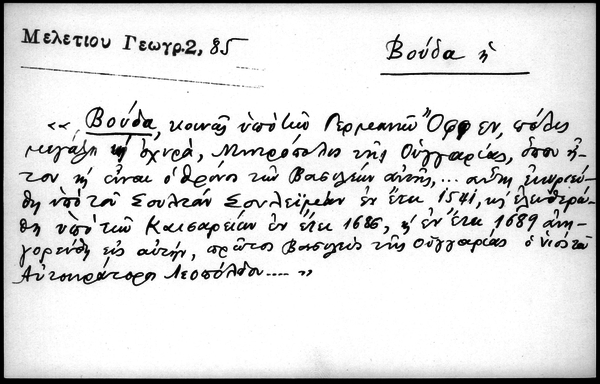 Μελετίου Γεωγρ. 2, 85
Βούδα ἡ
«Βούδα, κοινῶς ὑπὸ τῶν Γερμανῶν Ὄφφεν, πόλις
μεγάλη καὶ ὀχυρά, Μητρόπολις τῆς Οὐγγαρίας, ὅπου ἦ-
τον καὶ εἶναι ὁ θρόνος τῶν Βασιλέων αὐτῆς, ... αὕτη ἐκυριεύ-
θη ὑπὸ τοῦ Σουλτὰν Σουλεϊμὰν ἐν ἔτει 1541, καὶ ἐλευθερώ-
θη ὑπὸ τῶν Καισαρείων ἐν ἔτει 1686, καὶ ἐν ἔτει 1689 ἀνη-
γορεύθη εἰς αὐτήν, πρῶτος Βασιλεὺς τῆς Οὐγγαρίας ὁ υἱὸς τοῦ
Αὐτοκράτορος Λεοπόλδου .... »